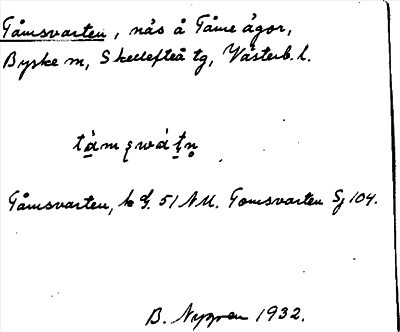 Tåmsvarten, näs å Tåme ägor,
Byske sn, Skellefteå tg, Västerb. l.
Tåmsvarten, k bl. 51 NU. Tomsvarten Sj 104.
B. Nygren 1932.